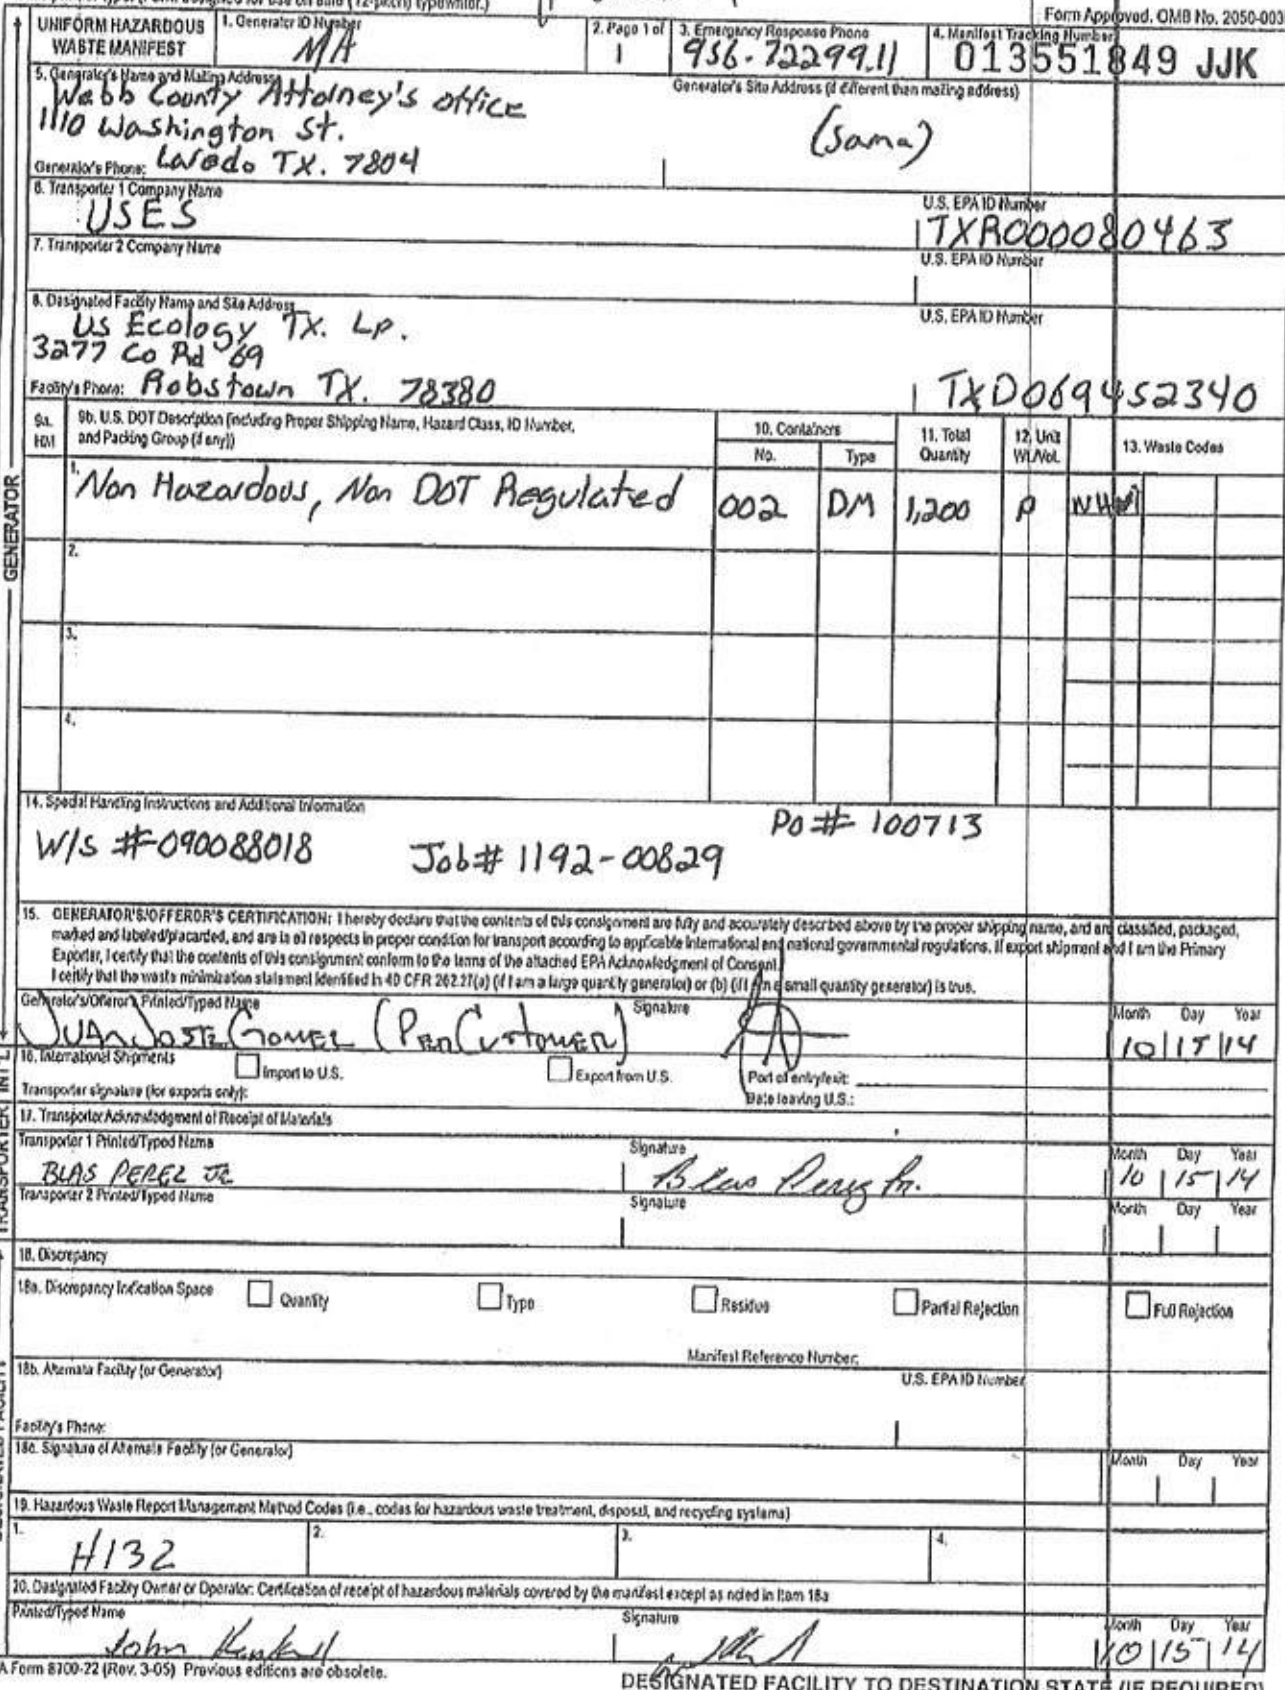 UNIFORM HAZARDOUS WASTE MANIFEST
1. Generator ID Number
N/A
2. Page 1 of
1
3. Emergency Response Phone
956-7229911
Form Approved. OMB No. 2050-003
4. Manifest Tracking Number
013551849 JJK
5. Generator's Name and Mailing Address
Webb County Attorney's office
1110 Washington St.
Generator's Phone: Laredo TX. 7804
Generator's Site Address (if different than mailing address)
(Same)
6. Transporter 1 Company Name
USES
U.S. EPA ID Number
TXR000080463
7. Transporter 2 Company Name
U.S. EPA ID Number
8. Designated Facility Name and Site Address
US Ecology TX. LP.
3277 Co Rd 69
Facility's Phone: Robstown TX. 78380
U.S. EPA ID Number
TXD069452340
9a. HM
9b. U.S. DOT Description (including Proper Shipping Name, Hazard Class, ID Number, and Packing Group (if any))
10. Containers
No.
Type
11. Total Quantity
12. Unit Wt./Vol.
13. Waste Codes
1. Non Hazardous, Non DOT Regulated
002
DM
1,200
P
2.
3.
4.
GENERATOR
14. Special Handling Instructions and Additional Information
W/S #090088018
Job# 1192-00829
PO# 100713
15. GENERATOR'S/OFFEROR'S CERTIFICATION: I hereby declare that the contents of this consignment are fully and accurately described above by the proper shipping name, and are classified, packaged,
marked and labeled/placarded, and are in all respects in proper condition for transport according to applicable international and national governmental regulations. If export shipment and I am the Primary
Exporter, I certify that the contents of this consignment conform to the terms of the attached EPA Acknowledgment of Consent.
I certify that the waste minimization statement identified in 40 CFR 262.27(a) (if I am a large quantity generator) or (b) (if I am a small quantity generator) is true.
Generator's/Offeror's Printed/Typed Name
Signature
Month Day Year
Juan Jose Gomez (Per Customer)
10 15 14
16. International Shipments
Import to U.S.
Export from U.S.
Port of entry/exit:
Transporter signature (for exports only):
Date leaving U.S.:
17. Transporter Acknowledgment of Receipt of Materials
Transporter 1 Printed/Typed Name
Signature
Month Day Year
BLAS PEREZ JR
Blas Perez Jr.
10 15 14
Transporter 2 Printed/Typed Name
Signature
Month Day Year
18. Discrepancy
18a. Discrepancy Indication Space
Quantity
Type
Residue
Partial Rejection
Full Rejection
Manifest Reference Number:
18b. Alternate Facility (or Generator)
U.S. EPA ID Number
Facility's Phone:
18c. Signature of Alternate Facility (or Generator)
Month Day Year
19. Hazardous Waste Report Management Method Codes (i.e., codes for hazardous waste treatment, disposal, and recycling systems)
1.
H132
2.
3.
4.
20. Designated Facility Owner or Operator: Certification of receipt of hazardous materials covered by the manifest except as noted in Item 18a
Printed/Typed Name
Signature
Month Day Year
John
10 15 14
A Form 8700-22 (Rev. 3-05) Previous editions are obsolete.
DESIGNATED FACILITY TO DESTINATION STATE (IF REQUIRED)